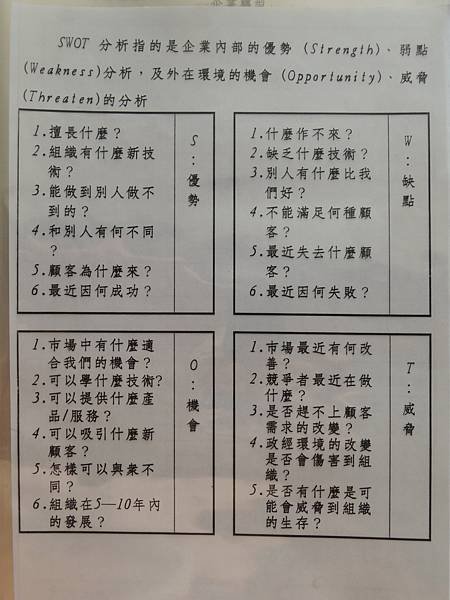 SWOT 分析指的是企業內部的優勢 (Strength)、弱點
(Weakness)分析，及外在環境的機會 (Opportunity)、威脅
(Threaten)的分析
1.擅長什麼？
2.組織有什麼新技
術？
3.能做到別人做不
到的？
4.和別人有何不同
？
5.顧客為什麼來？
6.最近因何成功？
S：優勢
1.什麼作不來？
2.缺乏什麼技術？
3.別人有什麼比我
們好？
4.不能滿足何種顧
客？
5.最近失去什麼顧
客？
6.最近因何失敗？
W：缺點
1.市場中有什麼適
合我們的機會？
2.可以學什麼技術?
3.可以提供什麼產
品/服務？
4.可以吸引什麼新
顧客？
5.怎樣可以與衆不
同？
6.組織在5—10年內
的發展？
O：機會
1.市場最近有何改
善？
2.競爭者最近在做
什麼？
3.是否趕不上顧客
需求的改變？
4.政經環境的改變
是否會傷害到組
織？
5.是否有什麼是可
能會威脅到組織
的生存？
T：威脅